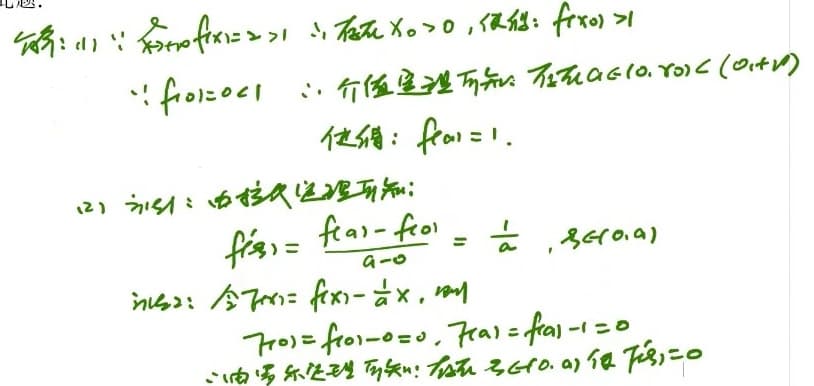 题:
解: (1) ∵ lim_{x→+∞} f(x)=2>1 ∴ 存在 x₀>0, 使得: f(x₀)>1
∵ f(0)=0<1 ∴ 介值定理可知: 存在 a∈(0, x₀)⊂(0,+∞)
使得: f(a)=1.
(2) 证法1: 由拉氏定理可知:
f'(ξ) = \frac{f(a)-f(0)}{a-0} = \frac{1}{a} , ξ∈(0,a)
证法2: 令 F(x)= f(x)-\frac{1}{a}x, 则
F(0)=f(0)-0=0, F(a)=f(a)-1=0
∴由罗尔定理可知: 存在 ξ∈(0,a) 使 F'(ξ)=0